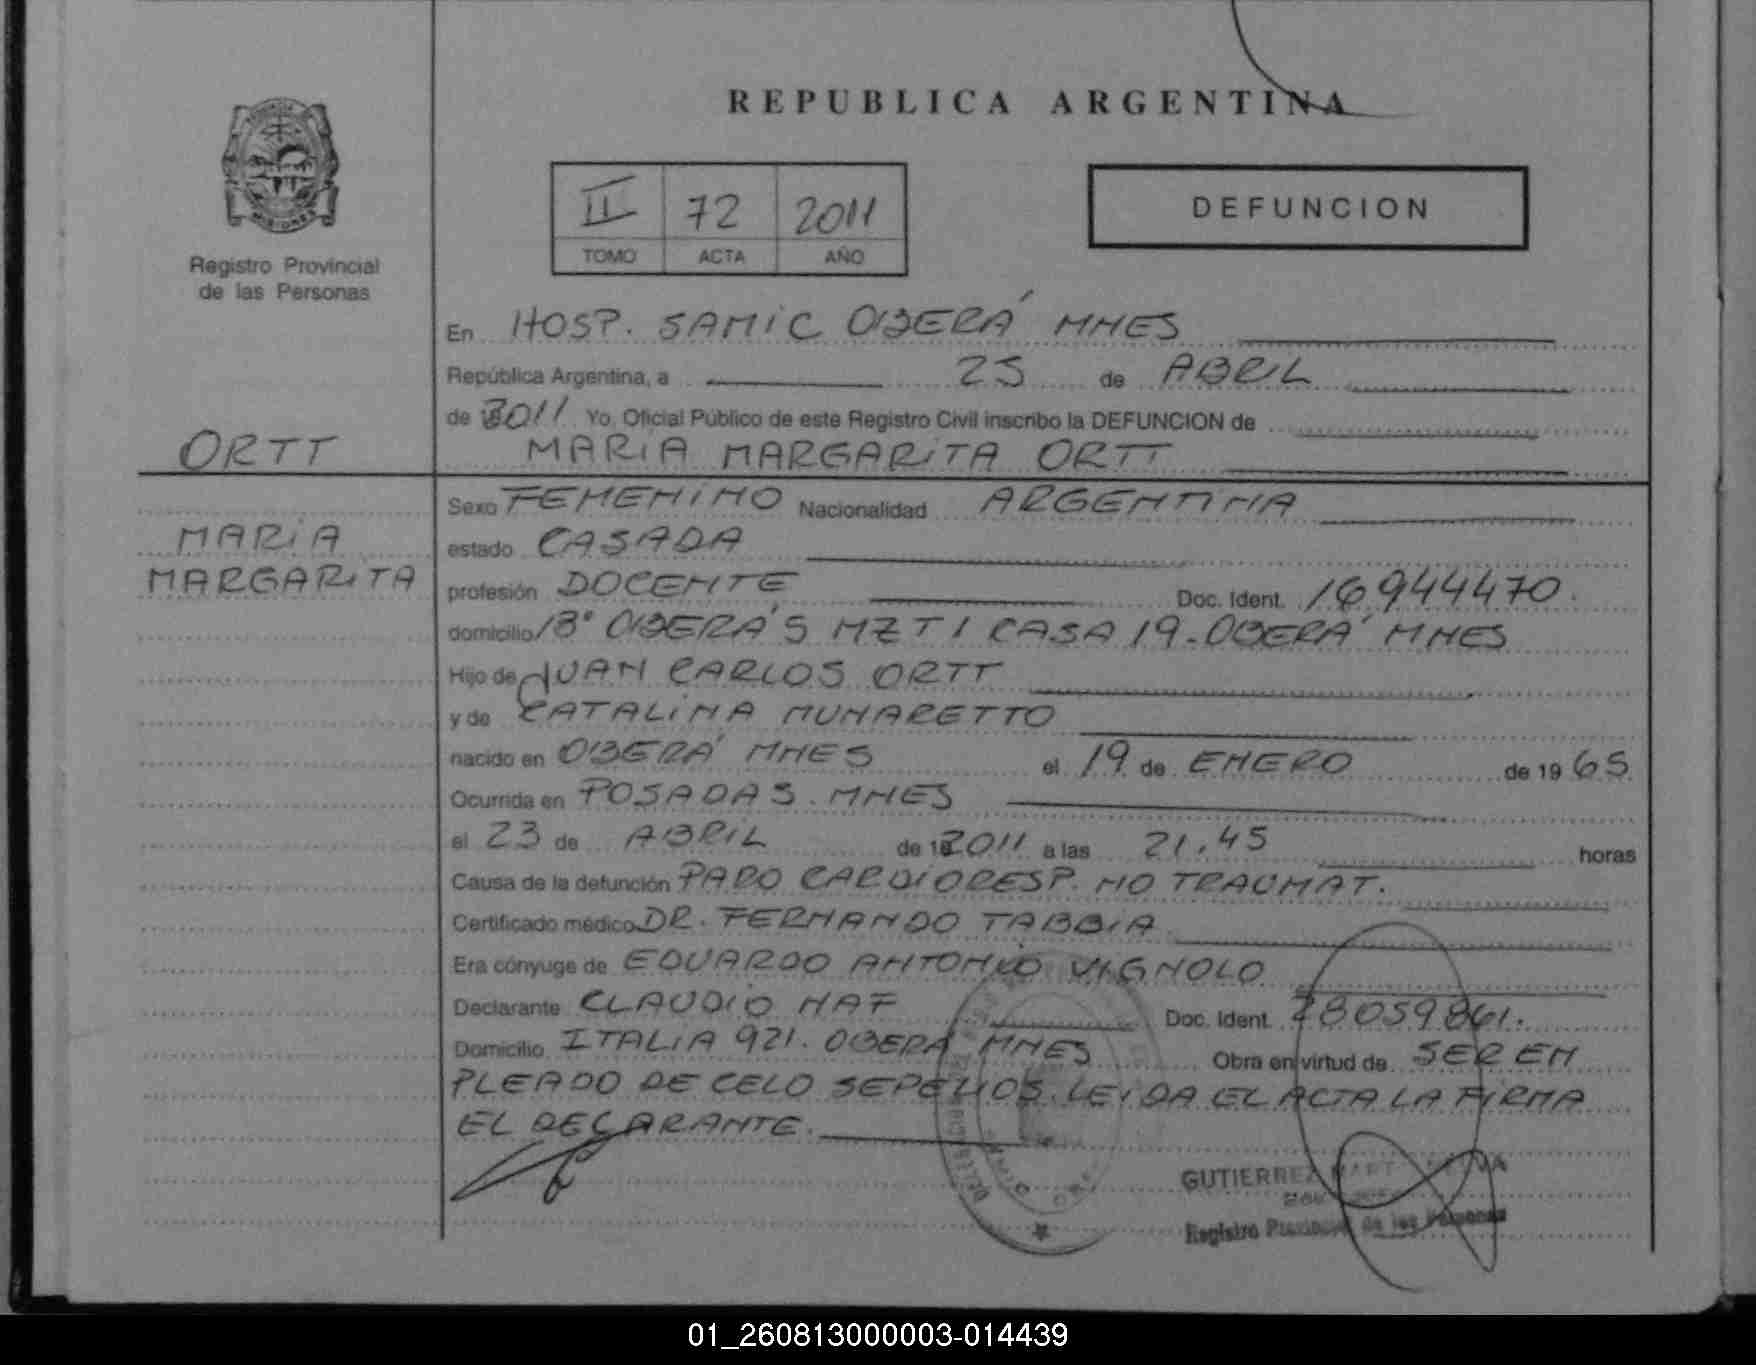 REPUBLICA ARGENTINA
II 72 2011
TOMO ACTA AÑO
DEFUNCION
MISIONES
Registro Provincial
de las Personas
En HOSP. SAMIC OBERÁ MNES
República Argentina, a 25 de ABRIL
de 2011 Yo, Oficial Público de este Registro Civil inscribo la DEFUNCION de
ORTT
MARIA MARGARITA ORTT
MARIA
MARGARITA
Sexo FEMENINO Nacionalidad ARGENTINA
estado CASADA
profesión DOCENTE Doc. Ident. 16944470.
domicilio Bº OBERÁ 5 MZ T1 CASA 19-OBERÁ MNES
Hijo de JUAN CARLOS ORTT
y de CATALINA MUNARETTO
nacido en OBERÁ MNES el 19 de ENERO de 1965
Ocurrida en POSADAS. MNES
el 23 de ABRIL de 2011 a las 21.45 horas
Causa de la defunción PARO CARDIORESP. NO TRAUMAT.
Certificado médico DR. FERNANDO TABBIA
Era cónyuge de EDUARDO ANTONIO VIGNOLO
Declarante CLAUDIO NAF Doc. Ident. 28059861.
Domicilio ITALIA 921. OBERÁ MNES Obra en virtud de SER EM
PLEADO DE CELO SEPELIOS. LEIDA EL ACTA LA FIRMA
EL DECARANTE.
GUTIERREZ
Registro Provincial de las Personas
01_260813000003-014439